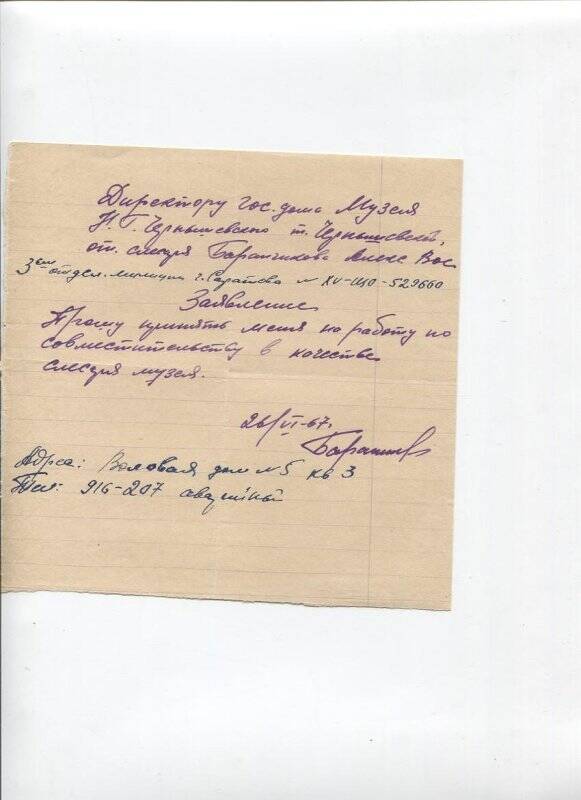 Директору гос. дома Музея
Н. Г. Чернышевского т. Чернышевской,
от. слесаря Баранчикова Алекс Вас
3 отдел. милиции г. Саратова № XV-ШЮ-529660
Заявление
Прошу принять меня на работу по
совместительству в качестве
слесаря музея.
26/VI-67г.
Адрес: Валовая дом №5 кв 3
Тел: 916-207